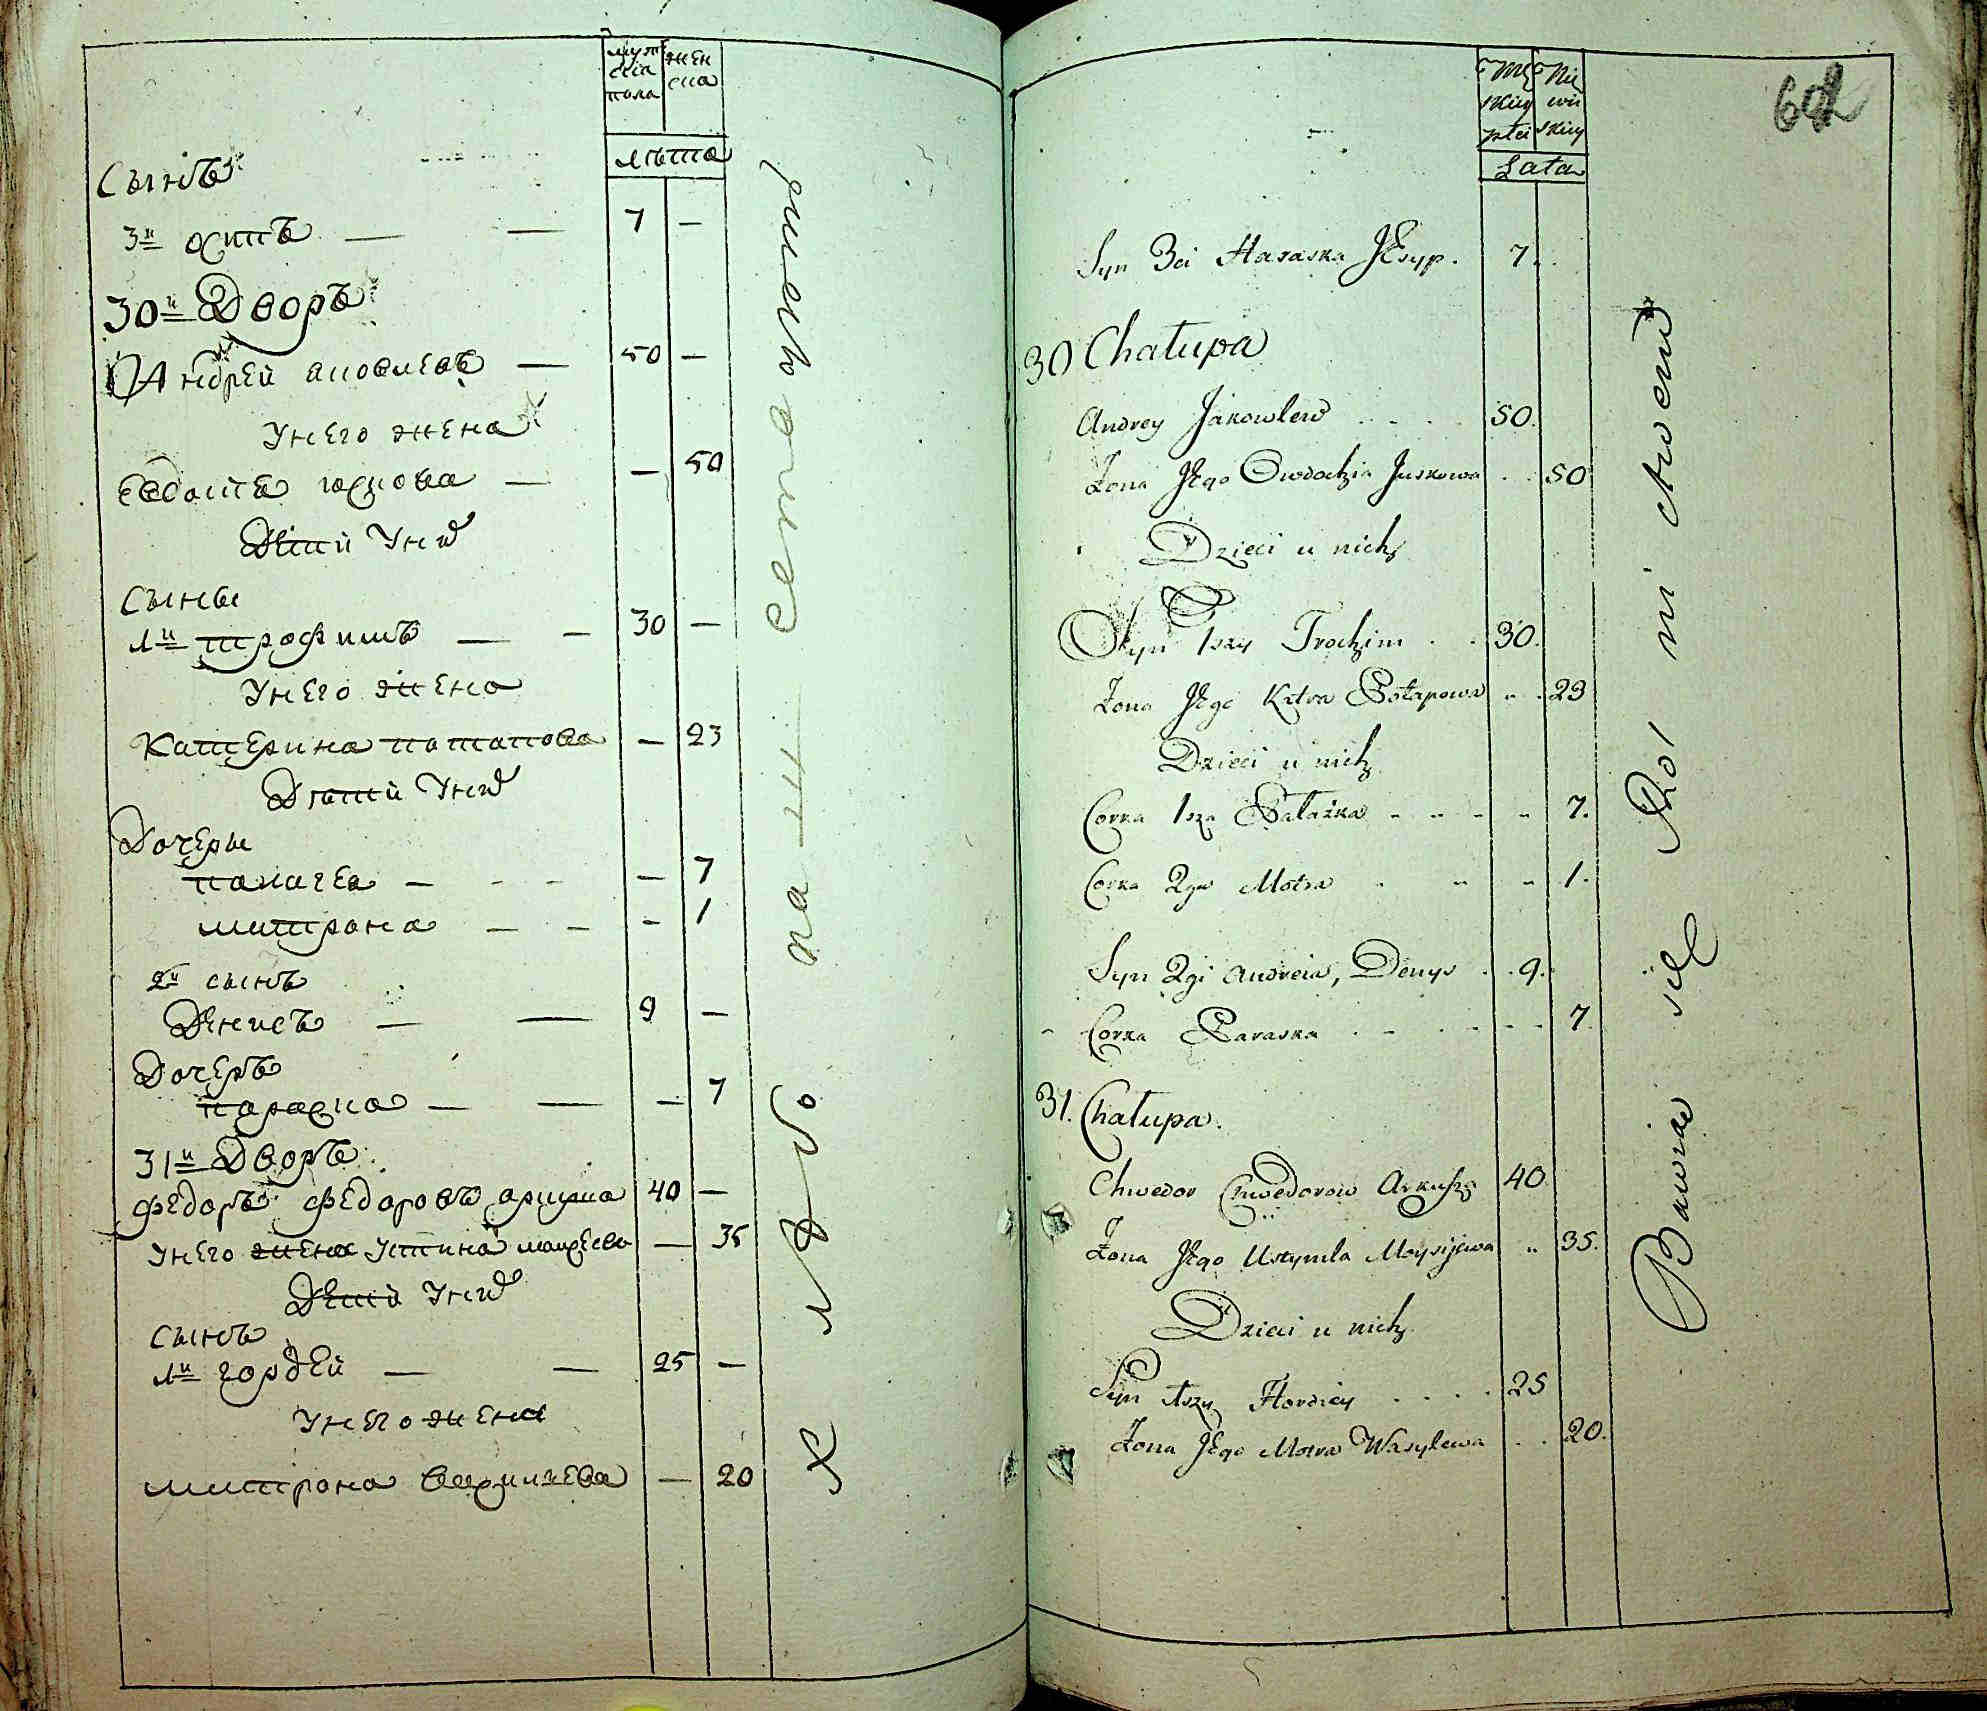 мужска пола
женска
лѣта
Сынъ
3й осипъ — — 7 —
30й Дворъ
Андрей яковлевъ — 50 —
У него жена
Евдокія юскова — — 50
Дети У них
Сыны
1й трофимъ — — 30 —
У него жена
Катерина потапова — 23
Дѣти У них
Дочеры
палагея — — 7
митрона — — — 1
2й сынъ
Денисъ — — 9 —
Дочеръ
параска — — — 7
31й Дворъ
Федоръ Федоровъ аркуша 40 —
У него жена Устина — 35
Дети У них
Сынъ
1й гордей — — 25 —
У него жена
митрона василиева — 20
Хлѣбо пашествомъ
Męskiey płci
Niewieskiey
Lata
Syn 3ci Haraska Jesyp. 7.
30 Chałupa
Andrey Jakowlew . . . . 50.
Żona Jego Owdotzia Juskowa . . 50
Dzieci u nich
Syn 1szy Trochim . . 30.
Żona Jego Katra Potapowa „ . 23
Dzieci u nich
Corka 1sza Pałażka - - - „ 7.
Corka 2ga Motra . „ „ 1.
Syn 2gi Andreia, Denys . . 9.
Corka Paraska . - . - - - 7.
31. Chałupa.
Chwedor Chwedorow Arkusza 40.
Żona Jego Ustynila Moysijewa „ 35.
Dzieci u nich
Syn 1szy Hordiey . . . . 25
Żona Jego Motra Wasylewa . . 20.
Bawią się Rolnictwem